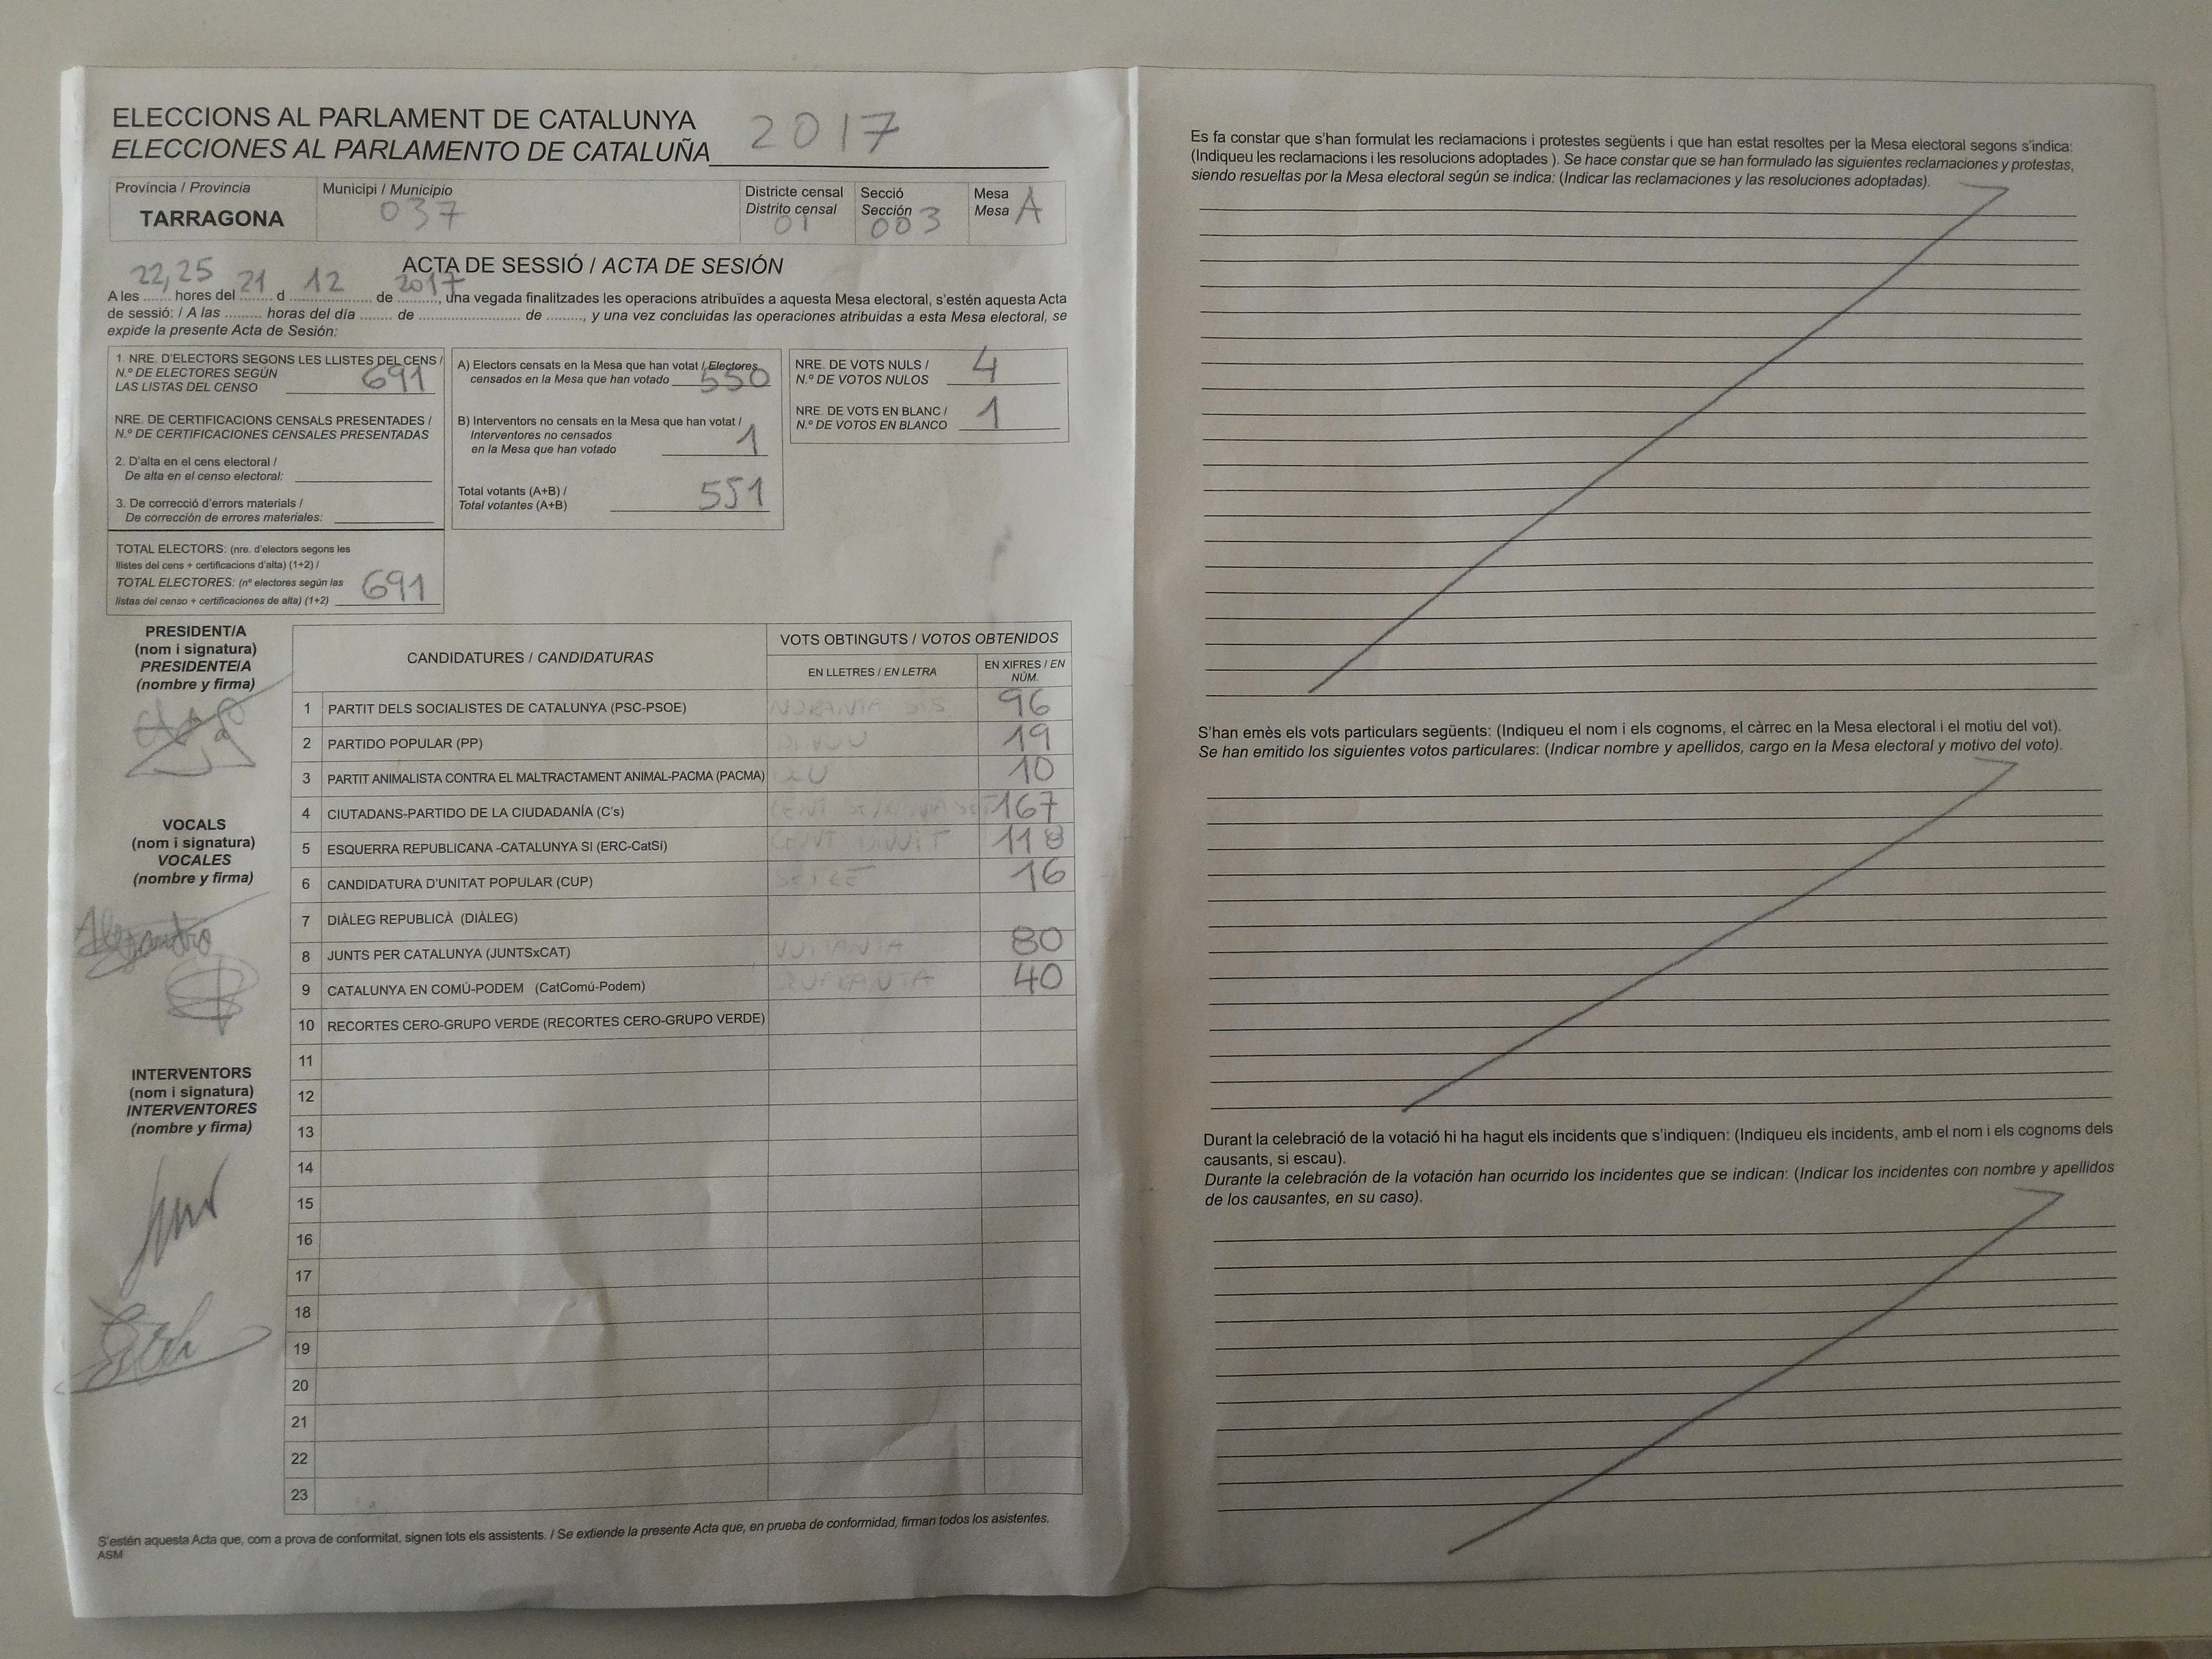 ELECCIONS AL PARLAMENT DE CATALUNYA
ELECCIONES AL PARLAMENTO DE CATALUÑA 2017
Província / Provincia
TARRAGONA
Municipi / Municipio
037
Districte censal
Distrito censal
01
Secció
Sección
003
Mesa
Mesa A
ACTA DE SESSIÓ / ACTA DE SESIÓN
22,25 21 12 2017
A les ....... hores del ........ d .................... de .........., una vegada finalitzades les operacions atribuïdes a aquesta Mesa electoral, s'estén aquesta Acta
de sessió: / A las ......... horas del día ........ de ....................... de ........., y una vez concluidas las operaciones atribuidas a esta Mesa electoral, se
expide la presente Acta de Sesión:
1. NRE. D'ELECTORS SEGONS LES LLISTES DEL CENS /
N.º DE ELECTORES SEGÚN
LAS LISTAS DEL CENSO 691
NRE. DE CERTIFICACIONS CENSALS PRESENTADES /
N.º DE CERTIFICACIONES CENSALES PRESENTADAS
2. D'alta en el cens electoral /
De alta en el censo electoral:
3. De correcció d'errors materials /
De corrección de errores materiales:
TOTAL ELECTORS: (nre. d'electors segons les
llistes del cens + certificacions d'alta) (1+2) /
TOTAL ELECTORES: (nº electores según las
listas del censo + certificaciones de alta) (1+2) 691
A) Electors censats en la Mesa que han votat / Electores
censados en la Mesa que han votado 550
B) Interventors no censats en la Mesa que han votat /
Interventores no censados
en la Mesa que han votado 1
Total votants (A+B) /
Total votantes (A+B) 551
NRE. DE VOTS NULS /
N.º DE VOTOS NULOS 4
NRE. DE VOTS EN BLANC /
N.º DE VOTOS EN BLANCO 1
PRESIDENT/A
(nom i signatura)
PRESIDENTE/A
(nombre y firma)
VOCALS
(nom i signatura)
VOCALES
(nombre y firma)
Alejandro
INTERVENTORS
(nom i signatura)
INTERVENTORES
(nombre y firma)
CANDIDATURES / CANDIDATURAS
VOTS OBTINGUTS / VOTOS OBTENIDOS
EN LLETRES / EN LETRA
EN XIFRES / EN
NÚM.
1 PARTIT DELS SOCIALISTES DE CATALUNYA (PSC-PSOE) NORANTA SIS 96
2 PARTIDO POPULAR (PP) DINOU 19
3 PARTIT ANIMALISTA CONTRA EL MALTRACTAMENT ANIMAL-PACMA (PACMA) 10
4 CIUTADANS-PARTIDO DE LA CIUDADANÍA (C's) CENT SEIXANTA SET 167
5 ESQUERRA REPUBLICANA -CATALUNYA SI (ERC-CatSí) DIVUIT 118
6 CANDIDATURA D'UNITAT POPULAR (CUP) SETZE 16
7 DIÀLEG REPUBLICÀ (DIÀLEG)
8 JUNTS PER CATALUNYA (JUNTSxCAT) VUITANTA 80
9 CATALUNYA EN COMÚ-PODEM (CatComú-Podem) QUARANTA 40
10 RECORTES CERO-GRUPO VERDE (RECORTES CERO-GRUPO VERDE)
11
12
13
14
15
16
17
18
19
20
21
22
23
S'estén aquesta Acta que, com a prova de conformitat, signen tots els assistents. / Se extiende la presente Acta que, en prueba de conformidad, firman todos los asistentes.
ASM
Es fa constar que s'han formulat les reclamacions i protestes següents i que han estat resoltes per la Mesa electoral segons s'indica:
(Indiqueu les reclamacions i les resolucions adoptades ). Se hace constar que se han formulado las siguientes reclamaciones y protestas,
siendo resueltas por la Mesa electoral según se indica: (Indicar las reclamaciones y las resoluciones adoptadas).
S'han emès els vots particulars següents: (Indiqueu el nom i els cognoms, el càrrec en la Mesa electoral i el motiu del vot).
Se han emitido los siguientes votos particulares: (Indicar nombre y apellidos, cargo en la Mesa electoral y motivo del voto).
Durant la celebració de la votació hi ha hagut els incidents que s'indiquen: (Indiqueu els incidents, amb el nom i els cognoms dels
causants, si escau).
Durante la celebración de la votación han ocurrido los incidentes que se indican: (Indicar los incidentes con nombre y apellidos
de los causantes, en su caso).